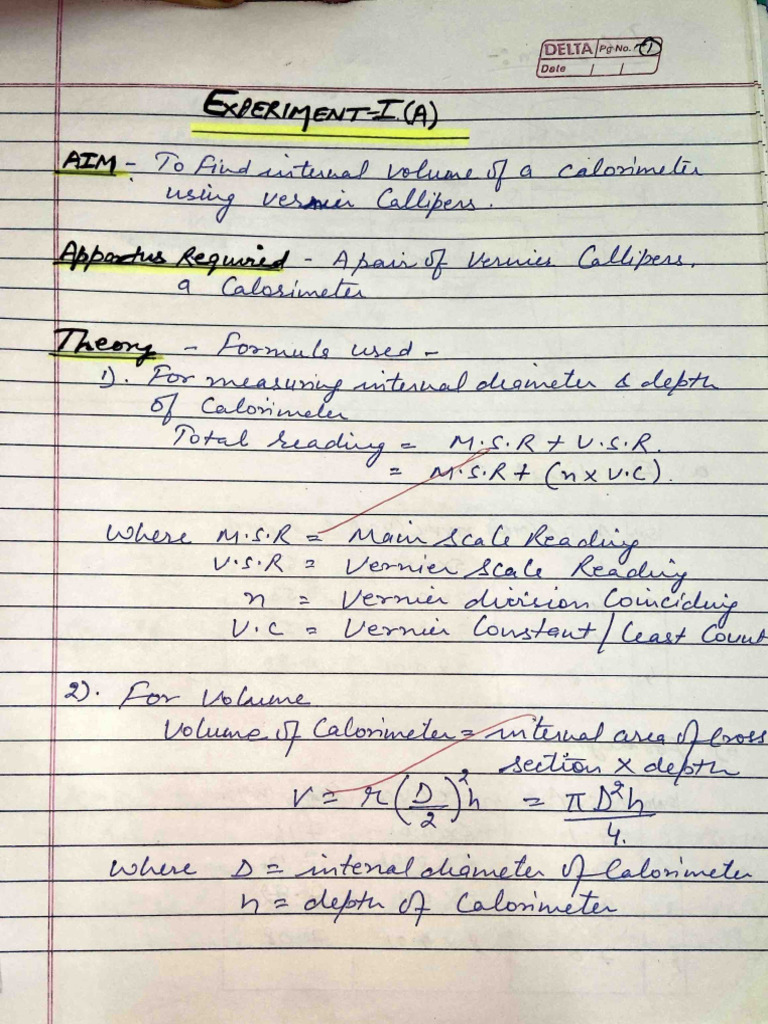 DELTA Pg No. 1
Date / /
EXPERIMENT-I (A)
AIM - To find internal volume of a calorimeter
using vernier Callipers.
Appartus Required - A pair of Vernier Callipers,
a Calorimeter
Theory - Formula used -
1). For measuring internal diameter & depth
of Calorimeter
Total reading = M.S.R + V.S.R.
= M.S.R + (n x V.C).
Where M.S.R = Main Scale Reading
V.S.R = Vernier Scale Reading
n = Vernier division Coinciding
V.C = Vernier Constant / Least Count
2). For Volume
Volume of Calorimeter = internal area of Cross
section X depth
V = r(D/2)²h = πD²h/4.
Where D = internal diameter of Calorimeter
h = depth of Calorimeter